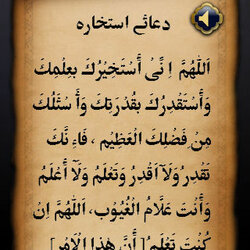 دعائے استخارہ
اَللّٰهُمَّ اِنِّىْ أَسْتَخِيْرُكَ بِعِلْمِكَ
وَأَسْتَقْدِرُكَ بِقُدْرَتِكَ وَأَسْئَلُكَ
مِنْ فَضْلِكَ الْعَظِيْمِ ، فَاِنَّكَ
تَقْدِرُ وَلَآ أَقْدِرُ وَتَعْلَمُ وَلَآ أَعْلَمُ
وَأَنْتَ عَلَّامُ الْغُيُوْبِ، اَللّٰهُمَّ اِنْ
كُنْتَ تَعْلَمُ [أَنَّ هٰذَا الْاَمْرَ]